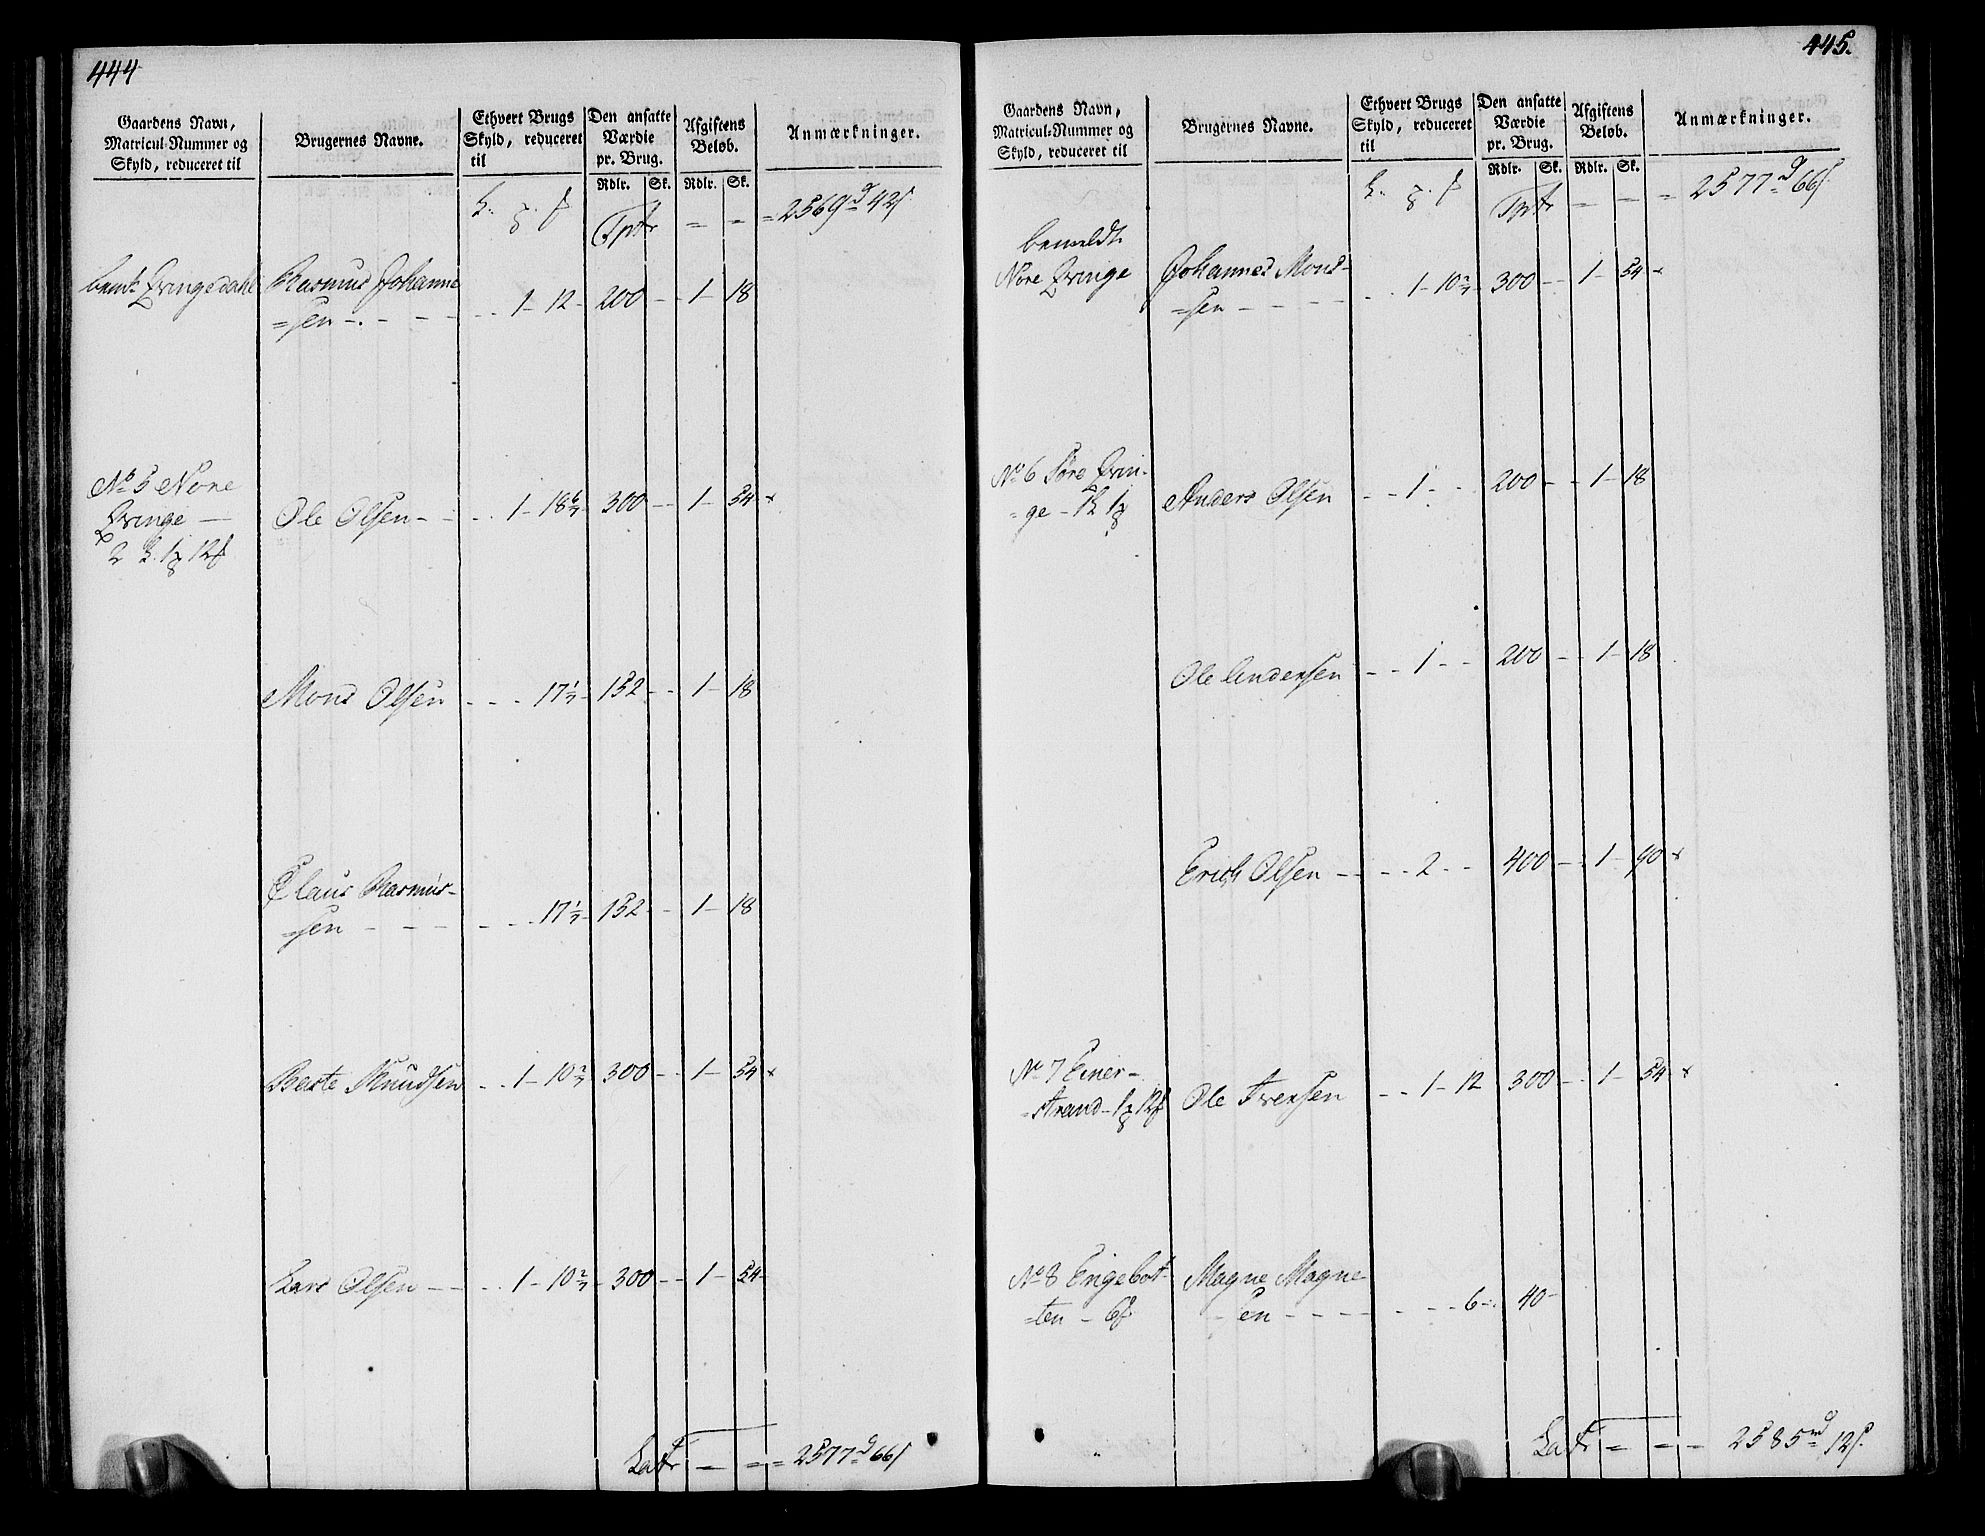 444
Gaardens Navn,
Matricul-Nummer og
Skyld, reduceret til
Brugernes Navne.
Ethvert Brugs
Skyld, reduceret
til
Den ansatte
Værdie
pr. Brug.
Rdlr. Sk.
Afgiftens
Beløb.
Rdlr. Sk.
Anmærkninger.
Tptr = = = 2569 d 42 s
bemte Qvingedahl Rasmus Johanne
=sen - - - - 1 - 12 - 200 - - 1 - 18
No 5 Nore
Qvinge
2 L. 1 12
Ole Olsen - - - 1 - 18 6/7 300 - - 1 - 54 x
Mons Olsen - - - 17 1/7 - 152 - - 1 - 18
Claus Rasmus-
=sen - - - - 17 1/7 - 152 - - 1 - 18
Berte Knudsen - - 1 - 10 2/7 300 - - 1 - 54 x
Lars Olsen - - - 1 - 10 2/7 - 300 - - 1 - 54
Latr = = = 2577 d 66 s
445.
Gaardens Navn,
Matricul-Nummer og
Skyld, reduceret til
Brugernes Navne.
Ethvert Brugs
Skyld, reduceret
til
Den ansatte
Værdie
pr. Brug.
Rdlr. Sk.
Afgiftens
Beløb.
Rdlr. Sk.
Anmærkninger.
Tptr = = = 2577 d 66 s
bemeldte
Nore Qvinge Johannes Mons-
=sen - - - - 1 - 10 2/7 300 - - 1 - 54 x
No 6 Søre Qvin-
=ge - 1 L 1
Anders Olsen - - 1 - - 200 - - 1 - 18
Ole Andersen - - 1 - - 200 - - 1 - 18
Erich Olsen - - - 2 - - 400 - - 1 - 90 x
No 7 Einer-
=strand - 1 12 Ole Iversen - - 1 - 12 300 - - 1 - 54 x
No 8 Engebot-
=ten - 6
Magne Magne
=sen - - - - - - 6 - 40 -
Latr = = = 2585 d 12 s